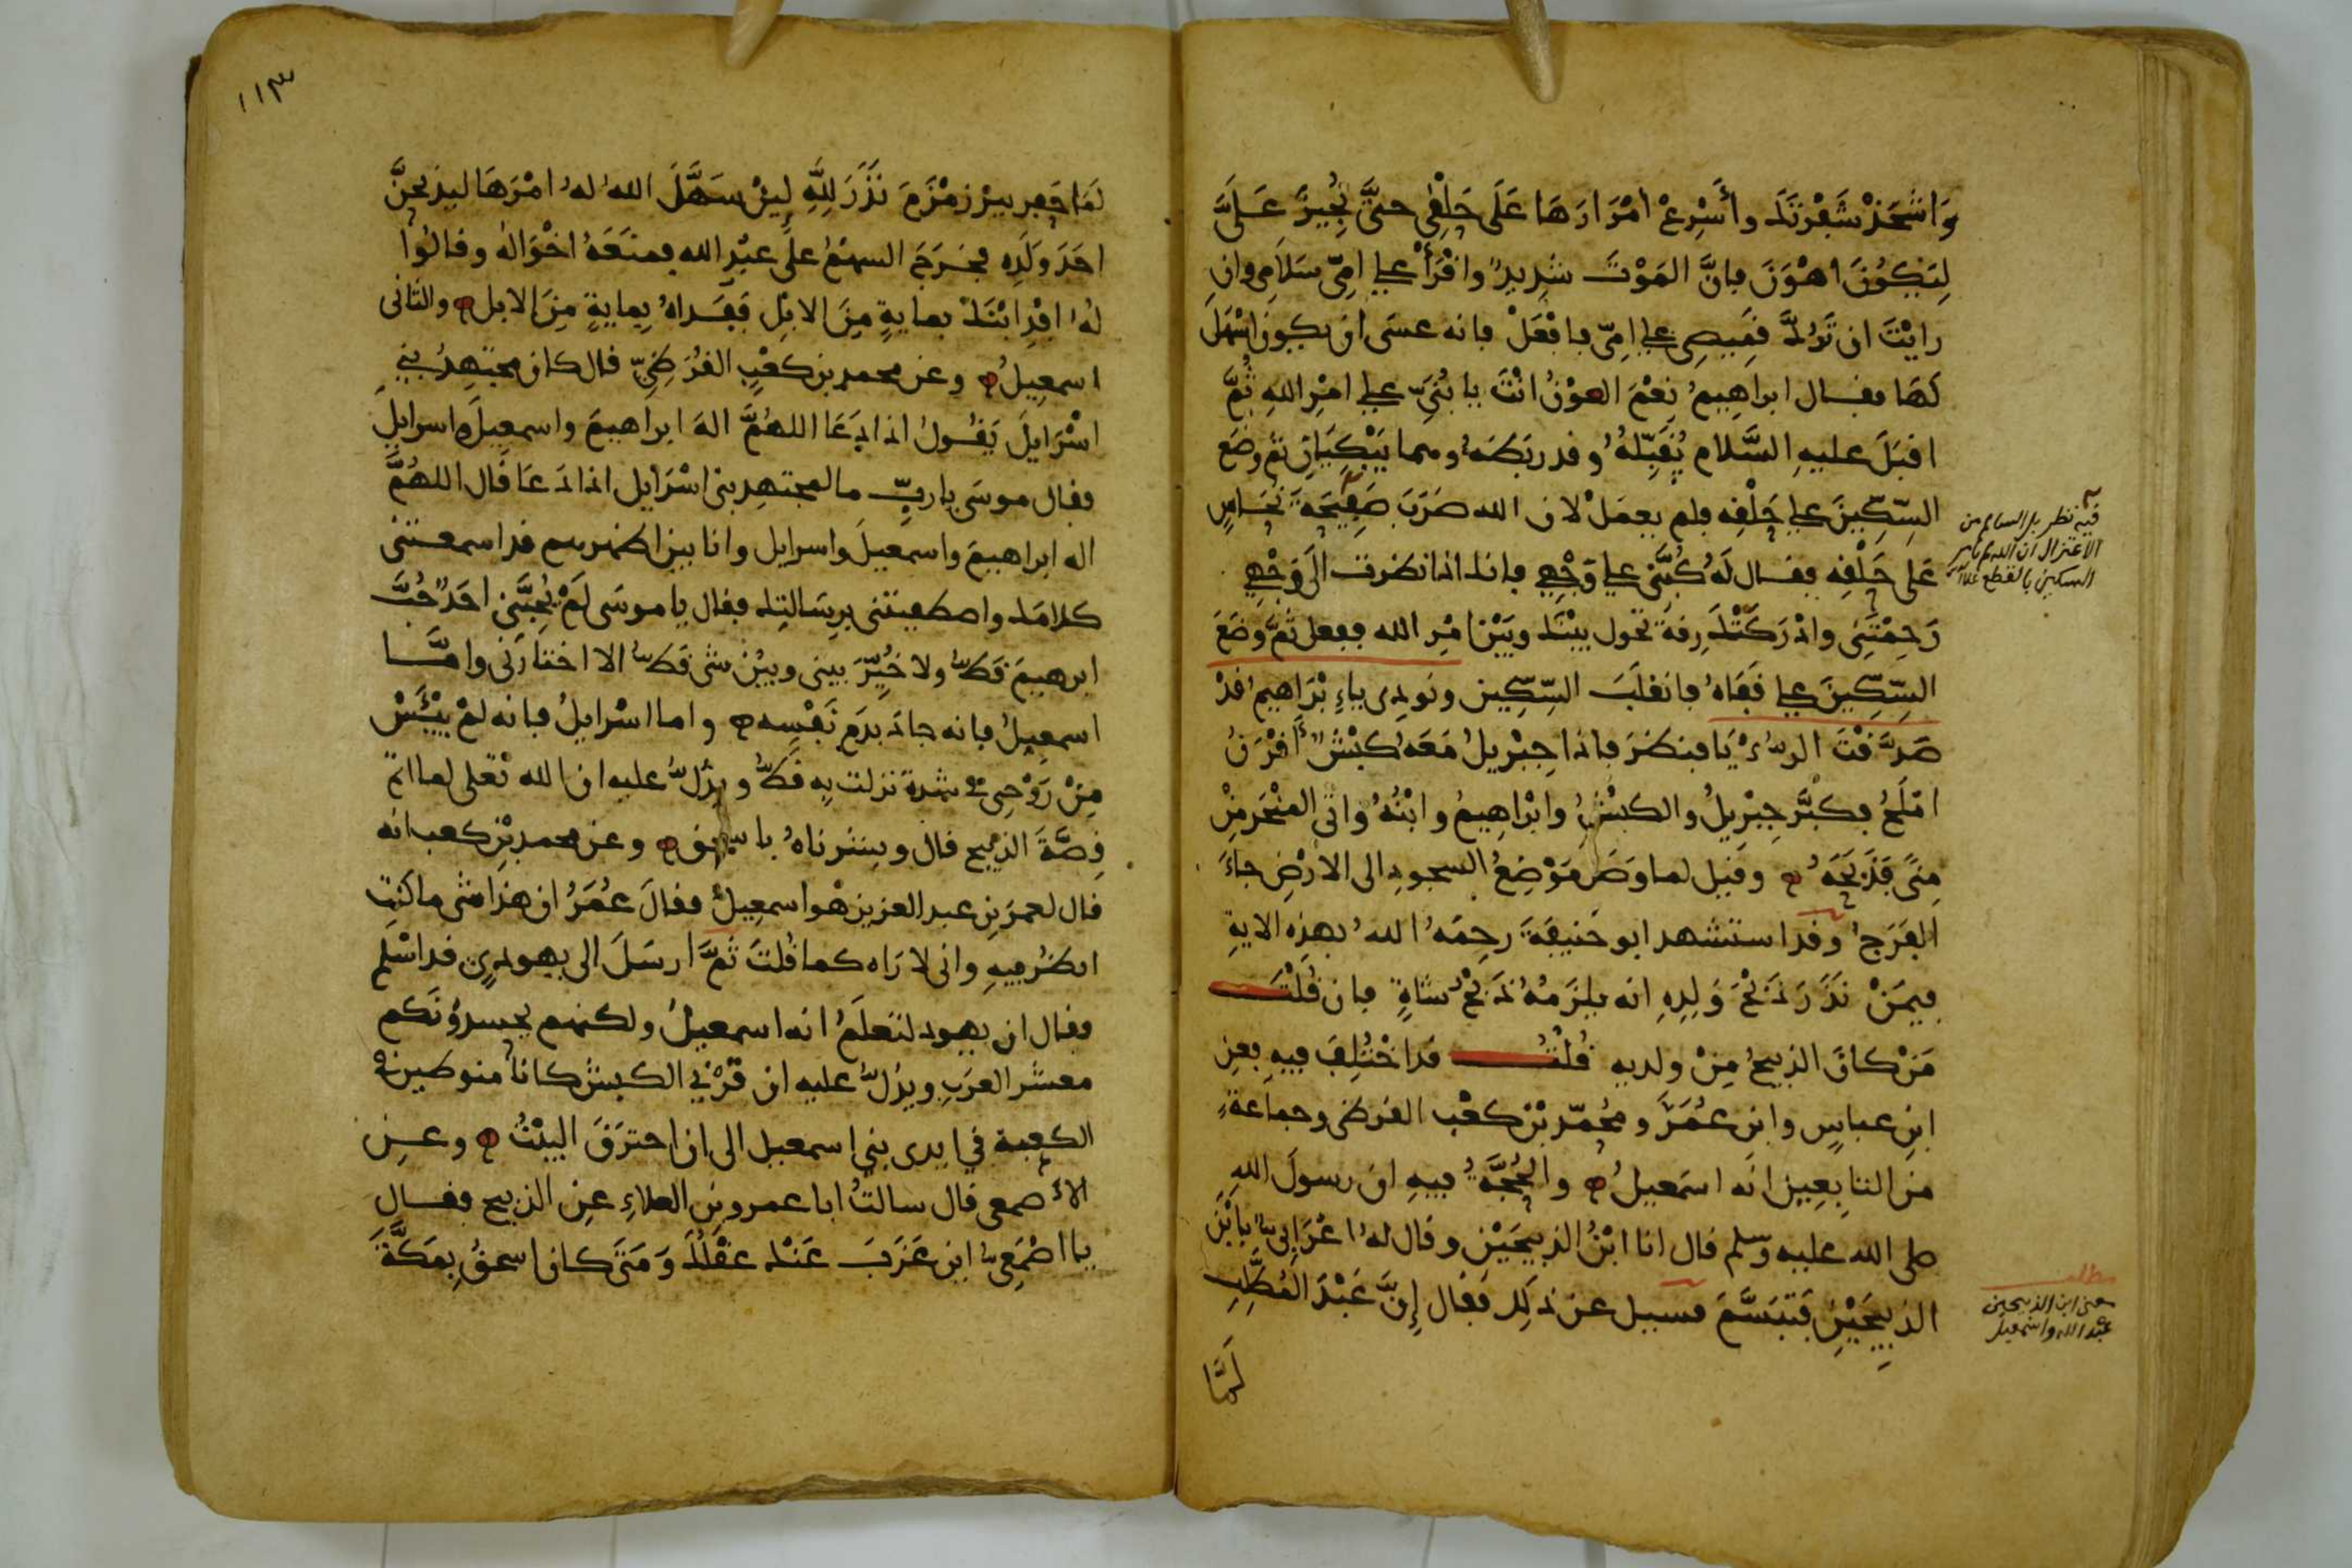 وَاشْحَذْ شَفْرَتَكَ وأَسْرِعْ امْرَارَهَا عَلَى حَلْقِي حتَّى تُجِيزَ عَلَىَّ
لِيَكُونَ اهْوَنَ فإنَّ المَوْتَ شَدِيدٌ واقْرَأْ على امِّى سَلاَمِى وان
رايْتَ ان تَرُدَّ قمِيصِى على امِّى فافْعَلْ فانه عسَى ان يكون اسْهَلَ
لهَا فقال ابراهِيمُ نِعْمَ العوْنُ انْتَ يا بُنَىَّ على امْرِ اللهِ ثُمَّ
اقبَلَ عليهِ السَّلام يُقَبِّلُهُ وقد ربَطَهُ وهما يَبْكِيَانِ ثم وضَع
السِّكِّينَ على حَلْقِه فلم يعمَلْ لان الله ضرَبَ صَفِيحَةَ نُحَاسٍ
عَلى حَلْقِه فقال لَهُ كُبَّنى على وَجْهِى فانك اذا نظرت الَى وَجْهِى
رَحِمْتَنِى وادْرَكَتْكَ رِقةٌ تحول بيْنَكَ وبَيْنَ امْرِ الله ففعل ثمَّ وضَعَ
السِّكِّينَ على قفَاهُ فانقلَبَ السِّكِّين ونودِى ياءِبْرَاهِيمُ قدْ
صَدَّقْتَ الرُّءْيَا فنظرَ فاذا جِبْرِيلُ مَعَهُ كبْشٌ أَقْرَنُ
امْلَحُ فكبَّر جِبْرِيلُ والكبْشُ وابْراهِيمُ وابْنُهُ واتى المنْحَرَ مِنْ
مِنًى فَذَبَحَهُ وقيل لما وصَل مَوْضِعُ السجودِ الى الارْضِ جاءَ
الفَرَجُ وقد استشهد ابو حَنِيفَةَ رحِمَهُ اللهُ بهذِهِ الايةِ
فيمَنْ نذَرَ ذَبْحَ وَلدِهِ انه يلزَمُهُ ذَبْحُ شاةٍ فان قُلْتَ
مَنْ كانَ الذبيحُ مِنْ ولديه قُلْتُ قد اخْتُلِفَ فيهِ فعنِ
ابنِ عباسٍ وابنِ عمُرَ ومُحَمّدِ بْنِ كعْبٍ القرظى وجماعةٍ
من التابِعِينَ انَّه اسمَعِيلُ والحُجَّةُ فيهِ ان رسولَ اللهِ
صلى الله عليه وسلم قال انا ابْنُ الذبيحَيْنِ وقال لهُ اعْرَابِىٌّ يا ابْنَ
الذبِيحَيْنِ فتبَسَّمَ فسيل عن ذلِكَ فقال إنَّ عَبْدَ المُطَّلِبِ
لَمَّا
فيه نظر بل السالم من
الاعتزال ان الله لم يامر
السكين بالقطع
مطلب
معنى ابن الذبيحين
عبد الله واسمعيل
١١٣
لمَّا حَفر بيرَ زمْزَمَ نذَرَ لِلَّهِ ليِنْ سهَّلَ اللهُ لهُ امْرَهَا ليذبحنَّ
احَدَ وَلَدِه فخَرجَ السهْمُ علَى عبْدِ الله فمنَعَهُ اخْوَالهُ وقالُوا
لهُ افْدِ ابْنَكَ بماية مِنَ الابِلِ ففَداهُ بِمايةٍ مِنَ الابل والثانى
اسمعِيلُ وعن محمد بن كعْبٍ القُرَظِىِّ قال كان مجتهدُ بنى
اسْرَايلَ يَقُولُ اذا دَعَا اللهُمَّ الهَ ابراهيمَ واسمعِيلَ واسرايلَ
فقال موسَى يا ربِّ ما لمجتهِدِ بنى اسْرَايل اذا دَعَا قَال اللهُمَّ
اله ابراهيمَ واسمعيلَ واسرايل وانا بين اظهرهم قد اسمعتنى
كلامَك واصطفيتنى برِسَالتِك فقال يا موسَى لَمْ يُحِبَّنى احَدٌ حُبَّ
ابرهيمَ قَطُّ ولا خُيِّرَ بينى وبيْنَ شى قَطُّ الا اختارَنى وامَّا
اسمعِيلُ فانه جادَ بدَمِ نَفْسِه واما اسْرايلُ فانه لمْ يَيْئَسْ
مِنْ رَوْحِى فى شدة نزلت بِه قَطُّ ويدُلُّ عليه ان الله تعلى لما اتم
قِصَّةَ الذبيح قال وبشرناهُ باسحق وعن محمد بْنِ كعب انه
قال لعمَر بنِ عبد العزيز هُوا سمعِيلُ فقالَ عُمَرُ ان هذا شى ما كنت
انظُر فيهِ وانى لا رَاه كما قُلتَ ثمَّ ارسَلَ الى يهودىٍّ قد اسْلم
فقال ان يهود لتَعلَمُ انه اسمعيلُ ولكنهم يحسدُونَكم
معشَر العرَبِ ويدُلُّ عليه ان قَرْنى الكبش كانا منوطين فى
الكعبة فى ايدى بنى اسمعيل الى ان احترَقَ البيْتُ وعن
الاصمعى قال سالتُ ابا عمرو بن العلاءِ عنِ الذبيح فقال
يا اصْمَعِىُّ اين عَزَبَ عَنْك عقْلُكَ وَمَتَى كان اسحقُ بمَكَّةَ